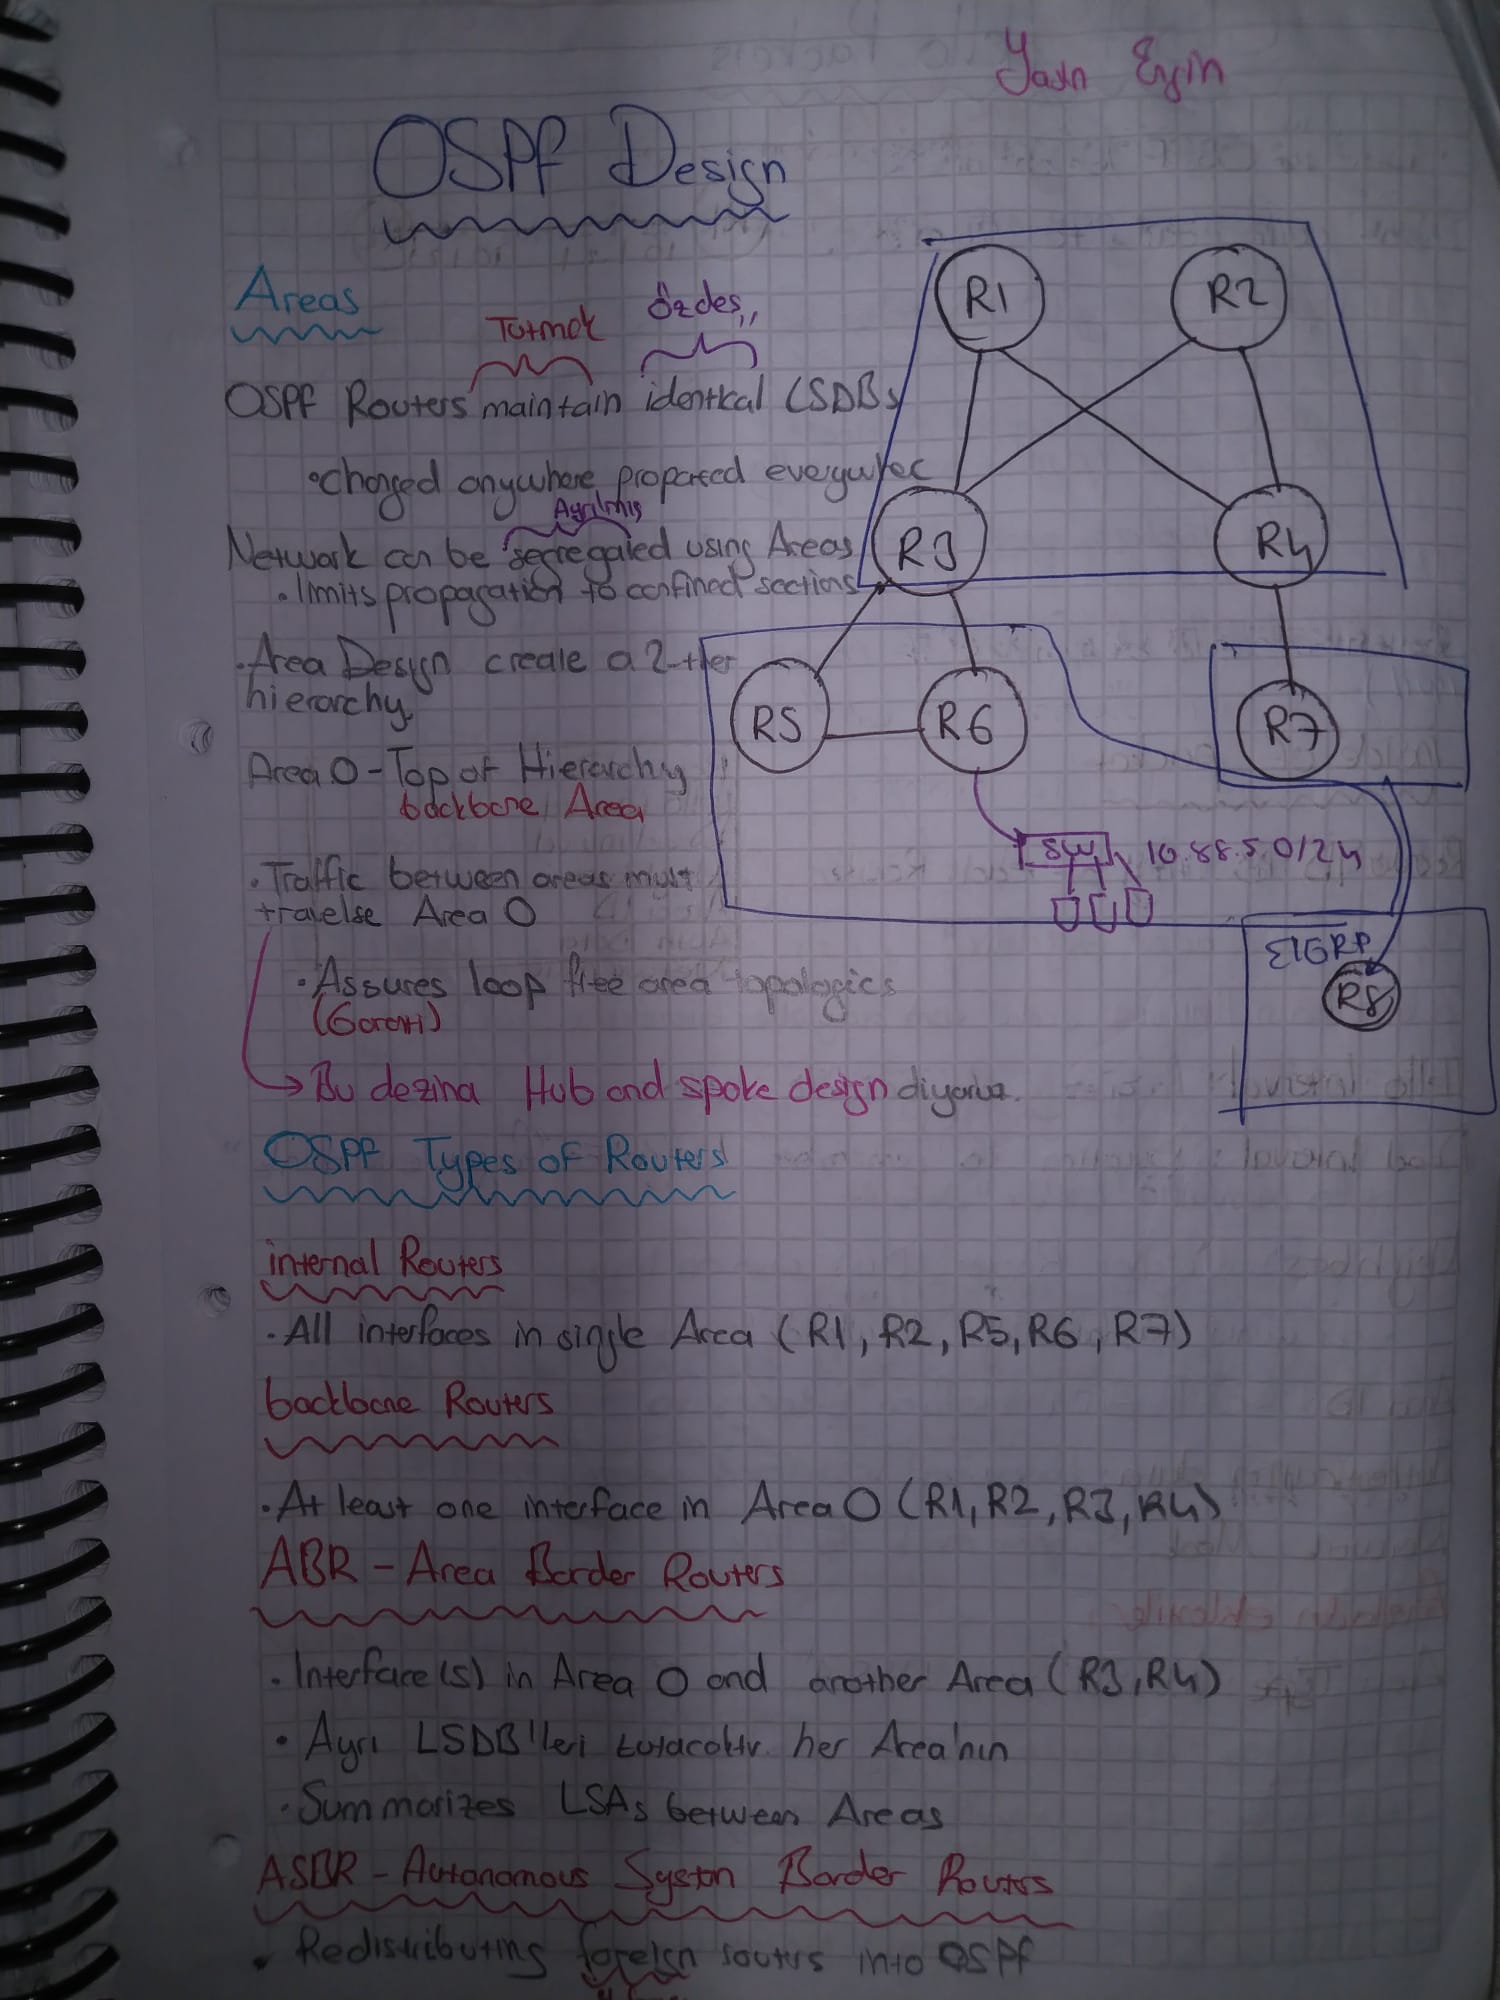 Yasın Ergin
OSPF Design
Areas
Tutmak
Özdeş
OSPF Routers maintain identical LSDBs
• Changed anywhere propated everywhere
Ayrılmış
Network can be segregated using Areas
• limits propagation to confined sections
• Area Design create a 2-tier
hierarchy.
Area 0 - Top of Hierarchy
backbone Area
• Traffic between areas must
travelse Area 0
• Assures loop free area topologies
(Garanti)
→ Bu dezina Hub and spoke design diyoruz.
R1
R2
R3
R4
R5
R6
R7
SW
10.88.5.0/24
EIGRP
R8
OSPF Types of Routers
internal Routers
• All interfaces in single Area (R1, R2, R5, R6, R7)
backbone Routers
• At least one interface in Area 0 (R1, R2, R3, R4)
ABR - Area Border Routers
• Interface(s) in Area 0 and another Area (R3, R4)
• Ayrı LSDB'leri tutacaktır her Area'nın
• Summarizes LSAs between Areas
ASBR - Autonomous System Border Routers
• Redistributing foreign routes into OSPF